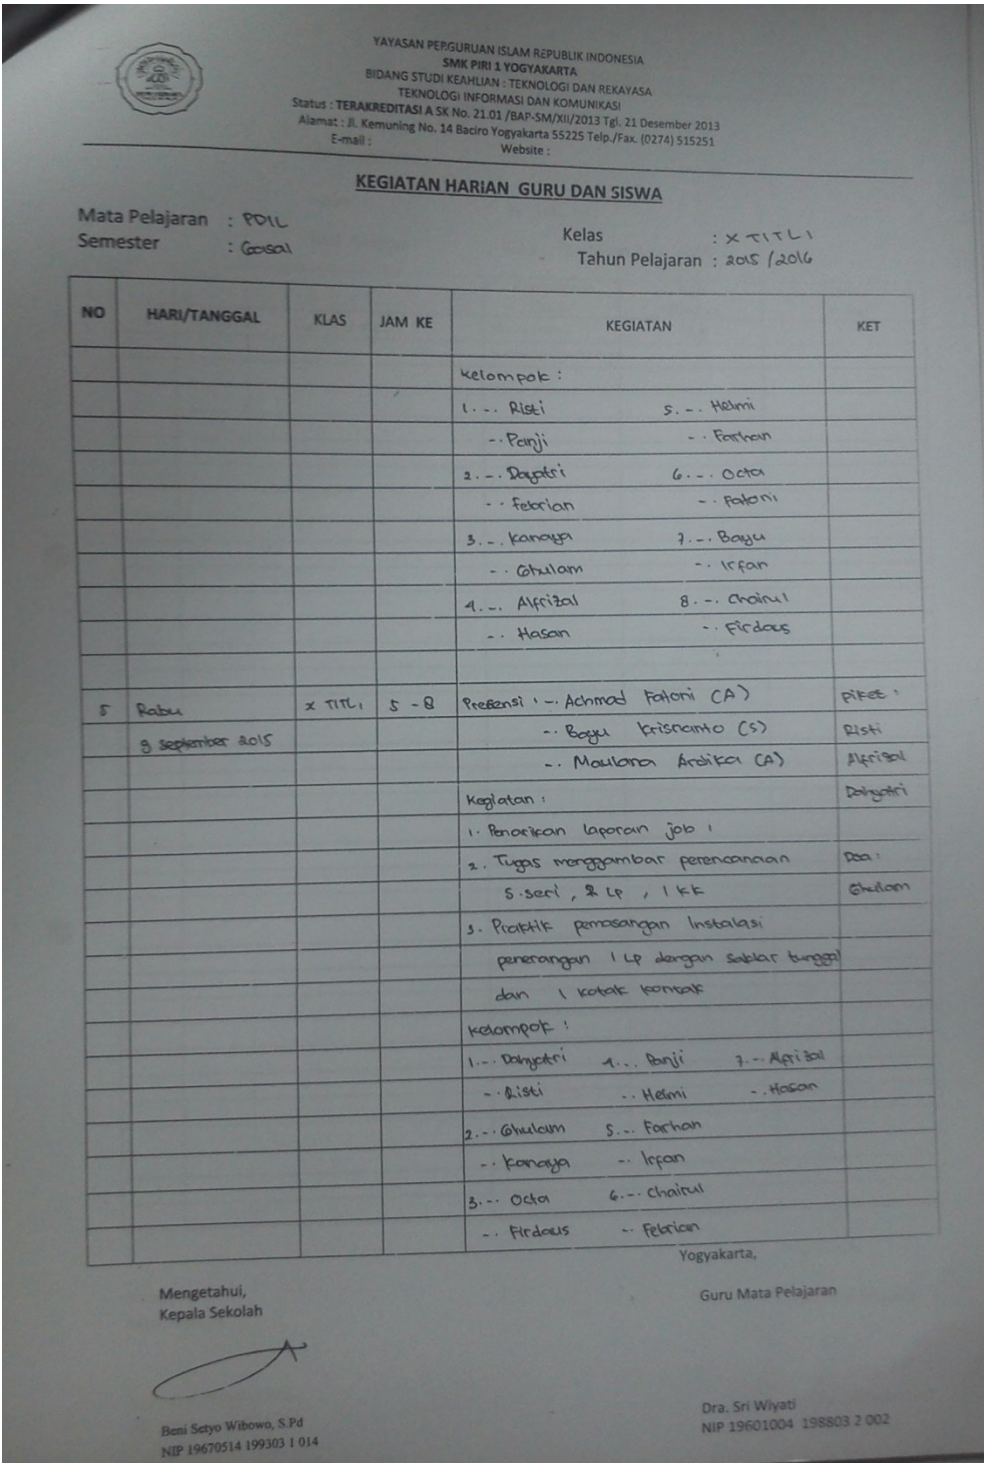 YAYASAN PERGURUAN ISLAM REPUBLIK INDONESIA
SMK PIRI 1 YOGYAKARTA
BIDANG STUDI KEAHLIAN : TEKNOLOGI DAN REKAYASA
TEKNOLOGI INFORMASI DAN KOMUNIKASI
Status : TERAKREDITASI A SK No. 21.01 /BAP-SM/XII/2013 Tgl. 21 Desember 2013
Alamat : Jl. Kemuning No. 14 Baciro Yogyakarta 55225 Telp./Fax. (0274) 515251
E-mail : Website :
KEGIATAN HARIAN GURU DAN SISWA
Mata Pelajaran : PDIL Kelas : X TITL 1
Semester : Gasal Tahun Pelajaran : 2015 / 2016
NO HARI/TANGGAL KLAS JAM KE KEGIATAN KET
Kelompok :
1. -. Risti 5. -. Helmi
-. Panji -. Farhan
2. -. Dayatri 6. -. Octa
-. Febrian -. Fatoni
3. -. Kanaya 7. -. Bayu
-. Ghulam -. Irfan
4. -. Alfrizal 8. -. Chairul
-. Hasan -. Firdaus
5 Rabu X TITL 1 5 - 8 Presensi : -. Achmad Fatoni (A) Piket :
9 September 2015 -. Bayu Krisnanto (S) Risti
-. Maulana Ardika (A) Alfrizal
Kegiatan : Dahyatri
1. Penarikan laporan job 1
2. Tugas menggambar perencanaan Doa :
S.seri , 2 LP , 1 KK Ghulam
3. Praktik pemasangan Instalasi
penerangan 1 LP dengan saklar tunggal
dan 1 kotak kontak
Kelompok :
1. -. Dahyatri 4. -. Panji 7. -. Alfrizal
-. Risti -. Helmi -. Hasan
2. -. Ghulam 5. -. Farhan
-. Kanaya -. Irfan
3. -. Octa 6. -. Chairul
-. Firdaus -. Febrian
Yogyakarta,
Mengetahui,
Kepala Sekolah Guru Mata Pelajaran
Beni Setyo Wibowo, S.Pd Dra. Sri Wiyati
NIP 19670514 199303 1 014 NIP 19601004 198803 2 002